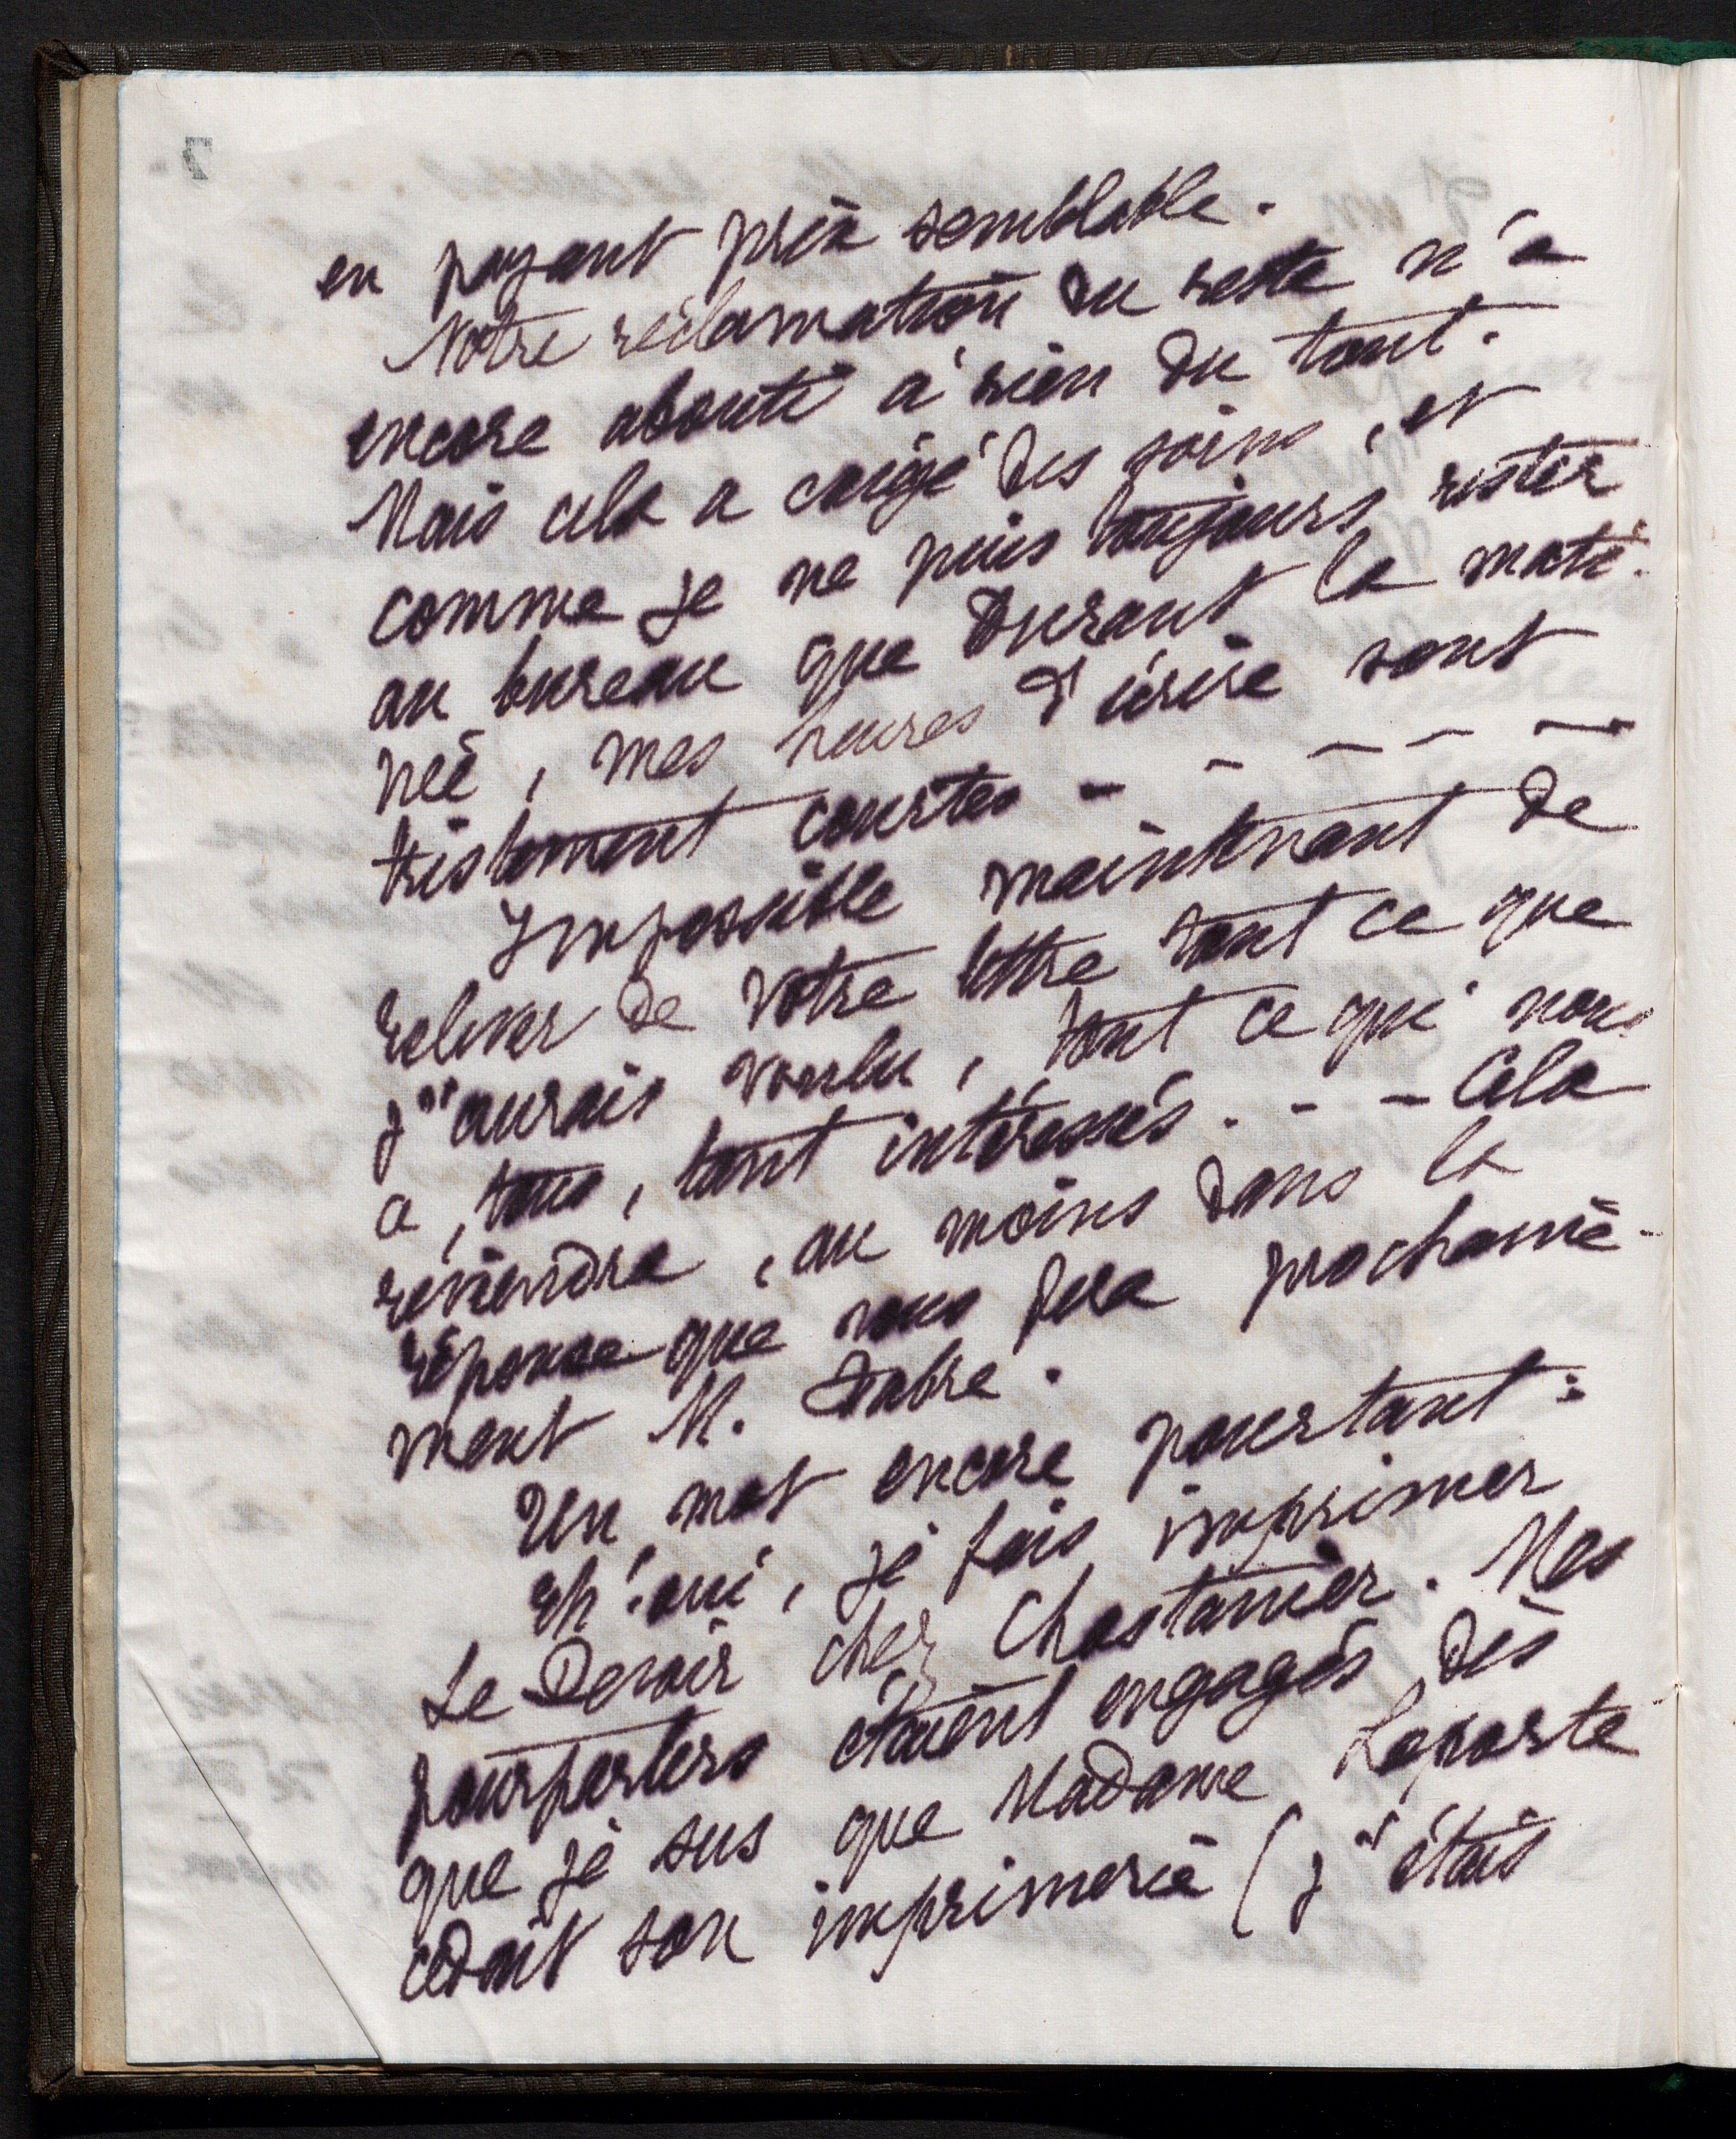 en payant prix semblable.
Notre réclamation du reste n'a
encore abouti à rien du tout.
Mais cela a exigé des soins, et
comme je ne puis toujours rester
au bureau que durant la mati-
née, mes heures d'écrire sont
tristement courtes - - - - -
Impossible maintenant de
relever de votre lettre tout ce que
j'aurais voulu, tout ce qui nous
a, tous, tant intéressés. - - Cela
reviendra, au moins dans la
réponse que vous fera prochaine-
ment M. Dubre.
Un mot encore pourtant :
Eh! oui, je fais imprimer
Le Devoir chez Chastanier. Mes
pourparlers étaient engagés dès
que je sus que Madame Laporte
cédait son imprimerie (j'étais